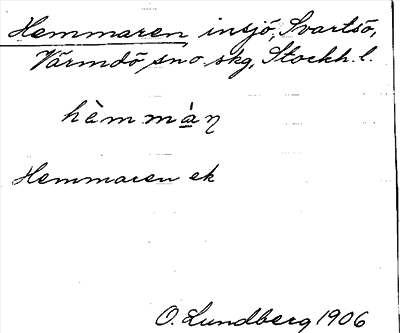 Hemmaren insjö, Svartsö,
Värmdö sn o skg, Stockh. l.
hèmmà̲ŋ
Hemmaren ek
O. Lundberg 1906